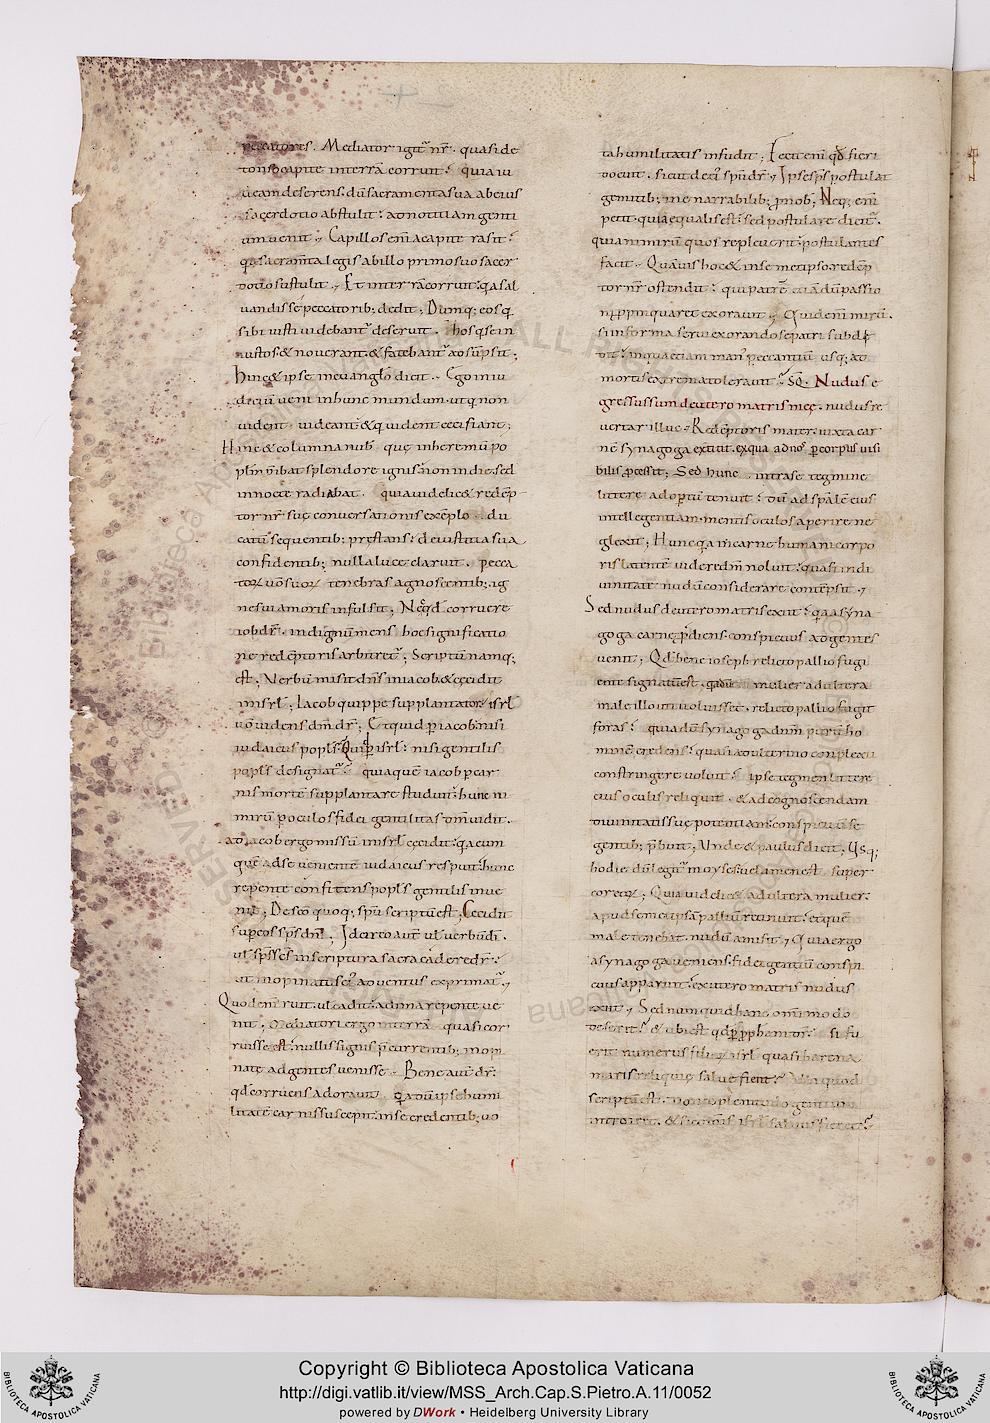 peccatores. Mediator igit᷑ nr̄. quasi de
tonso capite in terrā corruit. quia iu
deam deserens. dū sacramenta sua ab eius
sacerdotio abstulit. ad notitiam genti
um uenit. Capillos em̄ a capite rasit.
qa sacram̄ta legis ab illo primo suo sacer
dotio sustulit. Et in terrā corruit. qa sal
uandis se peccatorib; dedit; Dumq; eos q
sibi iusti uidebant᷑ deseruit. hos qse in
iustos & nouerant. & fatebant᷑ adsūpsit;
Hinc & ipse in euanglō dicit. Ego in iu
diciū ueni in hunc mundum. ut q non
uident uideant. & q uident ceci fiant;
Hinc & columna nub̄ quę in heremū po
plm̄ p̄ibat splendore ignis. non in die. sed
in nocte radiabat. quia uidelic& redēp
tor nr̄ suę conuersationis exēplo du
catū sequentib; pręstans. de iustitia sua
confidentib; nulla luce claruit. pecca
toꝝ uō suoꝝ tenebras agnoscentib; ig
ne sui amoris infulsit; Neqd̄ corruere
iob dr̄. indignū mens hoc significatio
ne redēptoris arbitret᷑; Scriptū namq;
est; Verbū misit dn̄s in iacob. & cecidit
in isrl̄; Iacob quippe supplantator isrl̄
uō uidens dm̄ dr̄; Et quid p̱ iacob. nisi
iudaicus popl̄s. Quid p̱ isrl̄. nisi gentilis
popl̄s designat᷑. quia quē iacob p̱ car
nis mortē supplantare studuit. hunc ni
mirū p̱ oculos fidei gentilitas dm̄ uidit.
Ad iacob ergo missū. in isrl̄ cecidit. qa eum
quē ad se uenientē iudaicus respuit. hunc
repente confitens popl̄s gentilis inue
nit; De scō quoq; spū scriptū est; Cecidit
sup̱ eos sp̄s dn̄i; Idcirco aut̄ ut uerbū di.
ut sp̄s scs̄ in scriptura sacra cadere dr̄.
ut inopinatus ei᷑ aduentus exprimat᷑.
Quod em̄ ruit. ut cadit. ad ima repente ue
nit; Mediatori ergo in terrā quasi cor
ruisse est. nullis signis p̄currentib; inopi
nate ad gentes uenisse. Bene aut̄ dr̄.
qd̄ corruens adorauit qa dū ipse humi
litatē carnis suscepit. in se credentib; uo
ta humilitatis infudit; Fecit em̄ qd̄ fieri
docuit. sicut de ei᷑ spū dr̄. Ipse sps̄ postulat
gemitib; inenarrabilib; p̱ nob̄; Neq; em̄
petit. qui aequalis est. sed postulare dicit᷑.
quia nimirū quos repleuerit. postulantes
facit. Quāuis hoc & in semetipso redēp
tor nr̄ ostendit. qui patrē etiā dū passio
ni p̱pinquaret exorauit. Quid em̄ mirū.
si in forma serui exorando se patri subdid
dit. in qua etiam man᷑ peccantiū. usq; ad
mortis extrema tolerauit. Sq̄. Nudus e
gressus sum de utero matris meę. nudus re
uertar illuc. Redēptoris mater. iuxta car
nē synagoga extitit. ex qua ad nos p̱ corpus uisi
bilis p̱cessit; Sed hunc intra se tegmine
littere adoptū tenuit. dū ad spalē eius
intellegentiam. mentis oculos aperire ne
glexit; Hunc qa in carne humani corpo
ris latentē uidere dm̄ noluit. quasi in di
uinitate nudū considerare contēpsit.
Sed nudus de utero matris exiit. qa a syna
goga carne p̱diens. conspicuus ad gentes
uenit; Qd̄ bene ioseph relicto pallio fugi
ente signatū est. q̱dū mulier adultera
male illo uti uoluisset. relicto pallio fugit
foras. quia dū synagoga dnm̄ purū ho
minē credens. quasi adulterino conplexu
constringere uoluit. ipse tegmen littere
eius oculis reliquit. & ad cognoscendam
diuinitatis suę potentiam conspicuū se
gentib; p̄buit; Unde & paulus dicit; Usq;
hodie dū legit᷑ moyses. uelamen est super
cor eoꝝ; Quia uidelic& adultera mulier.
apud semetipsā palliū retinuit. et quē
male tenebat. nudū amisit. Quia ergo
a synagoga ueniens. fidei gentiū conspi
cuus apparuit. ex utero matris nudus
exiit. Sed numquid hanc om̄imodo
deserit. & ubi est qd̄ p̱ p̱ph̄am dr̄. si fu
erit numerus filioꝝ isrl̄ quasi harena
maris reliquię salue fient. Ubi quod
scriptū est. donec plenitudo gentium
introiret. & sic om̄is isrl̄ saluus fieret.
Copyright © Biblioteca Apostolica Vaticana
http://digi.vatlib.it/view/MSS_Arch.Cap.S.Pietro.A.11/0052
powered by DWork • Heidelberg University Library